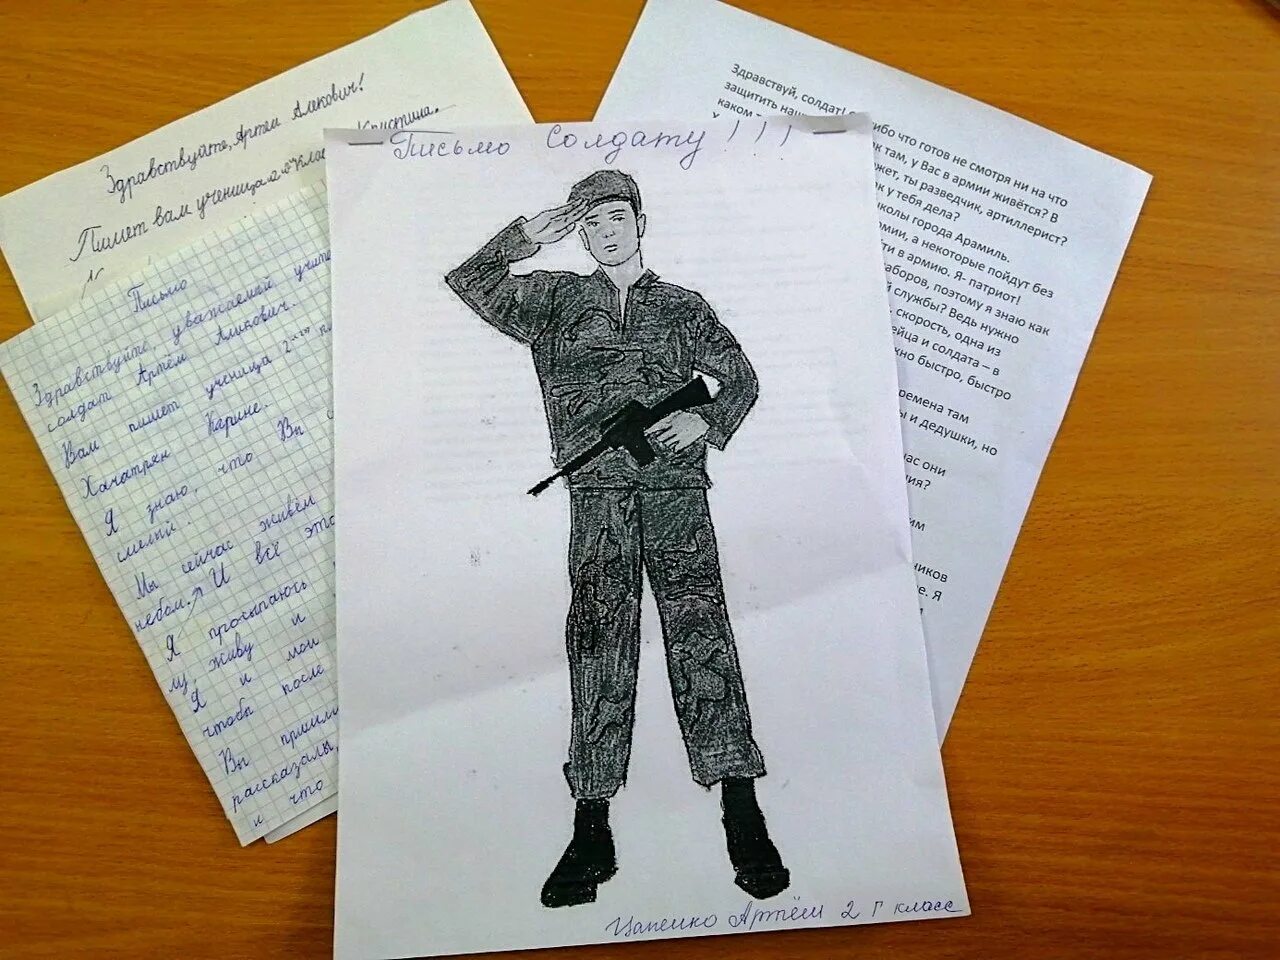 Здравствуйте, Артём Аликович!
Пишет вам ученица 2 Кристина.
Письмо
Здравствуйте, уважаемый
солдат Артём Аликович.
Вам пишет ученица 2
Хачатрян Карине.
Я знаю, что Вы
смелый.
Мы сейчас живём
небом. И всё это
Я просыпаюсь
живу и
Я и мои
чтобы после
Вы
рассказали,
и что
Письмо Солдату!!!
Цапенко Артём 2 Г класс
Здравствуй, солдат! что готов не смотря ни на что
защитить там, у Вас в армии живётся? В
каком ты разведчик, артиллерист?
у тебя дела?
города Арамиль.
а некоторые пойдут без
в армию. Я- патриот!
поэтому я знаю как
службы? Ведь нужно
скорость, одна из
и солдата – в
быстро, быстро
там
и дедушки, но
они
Я